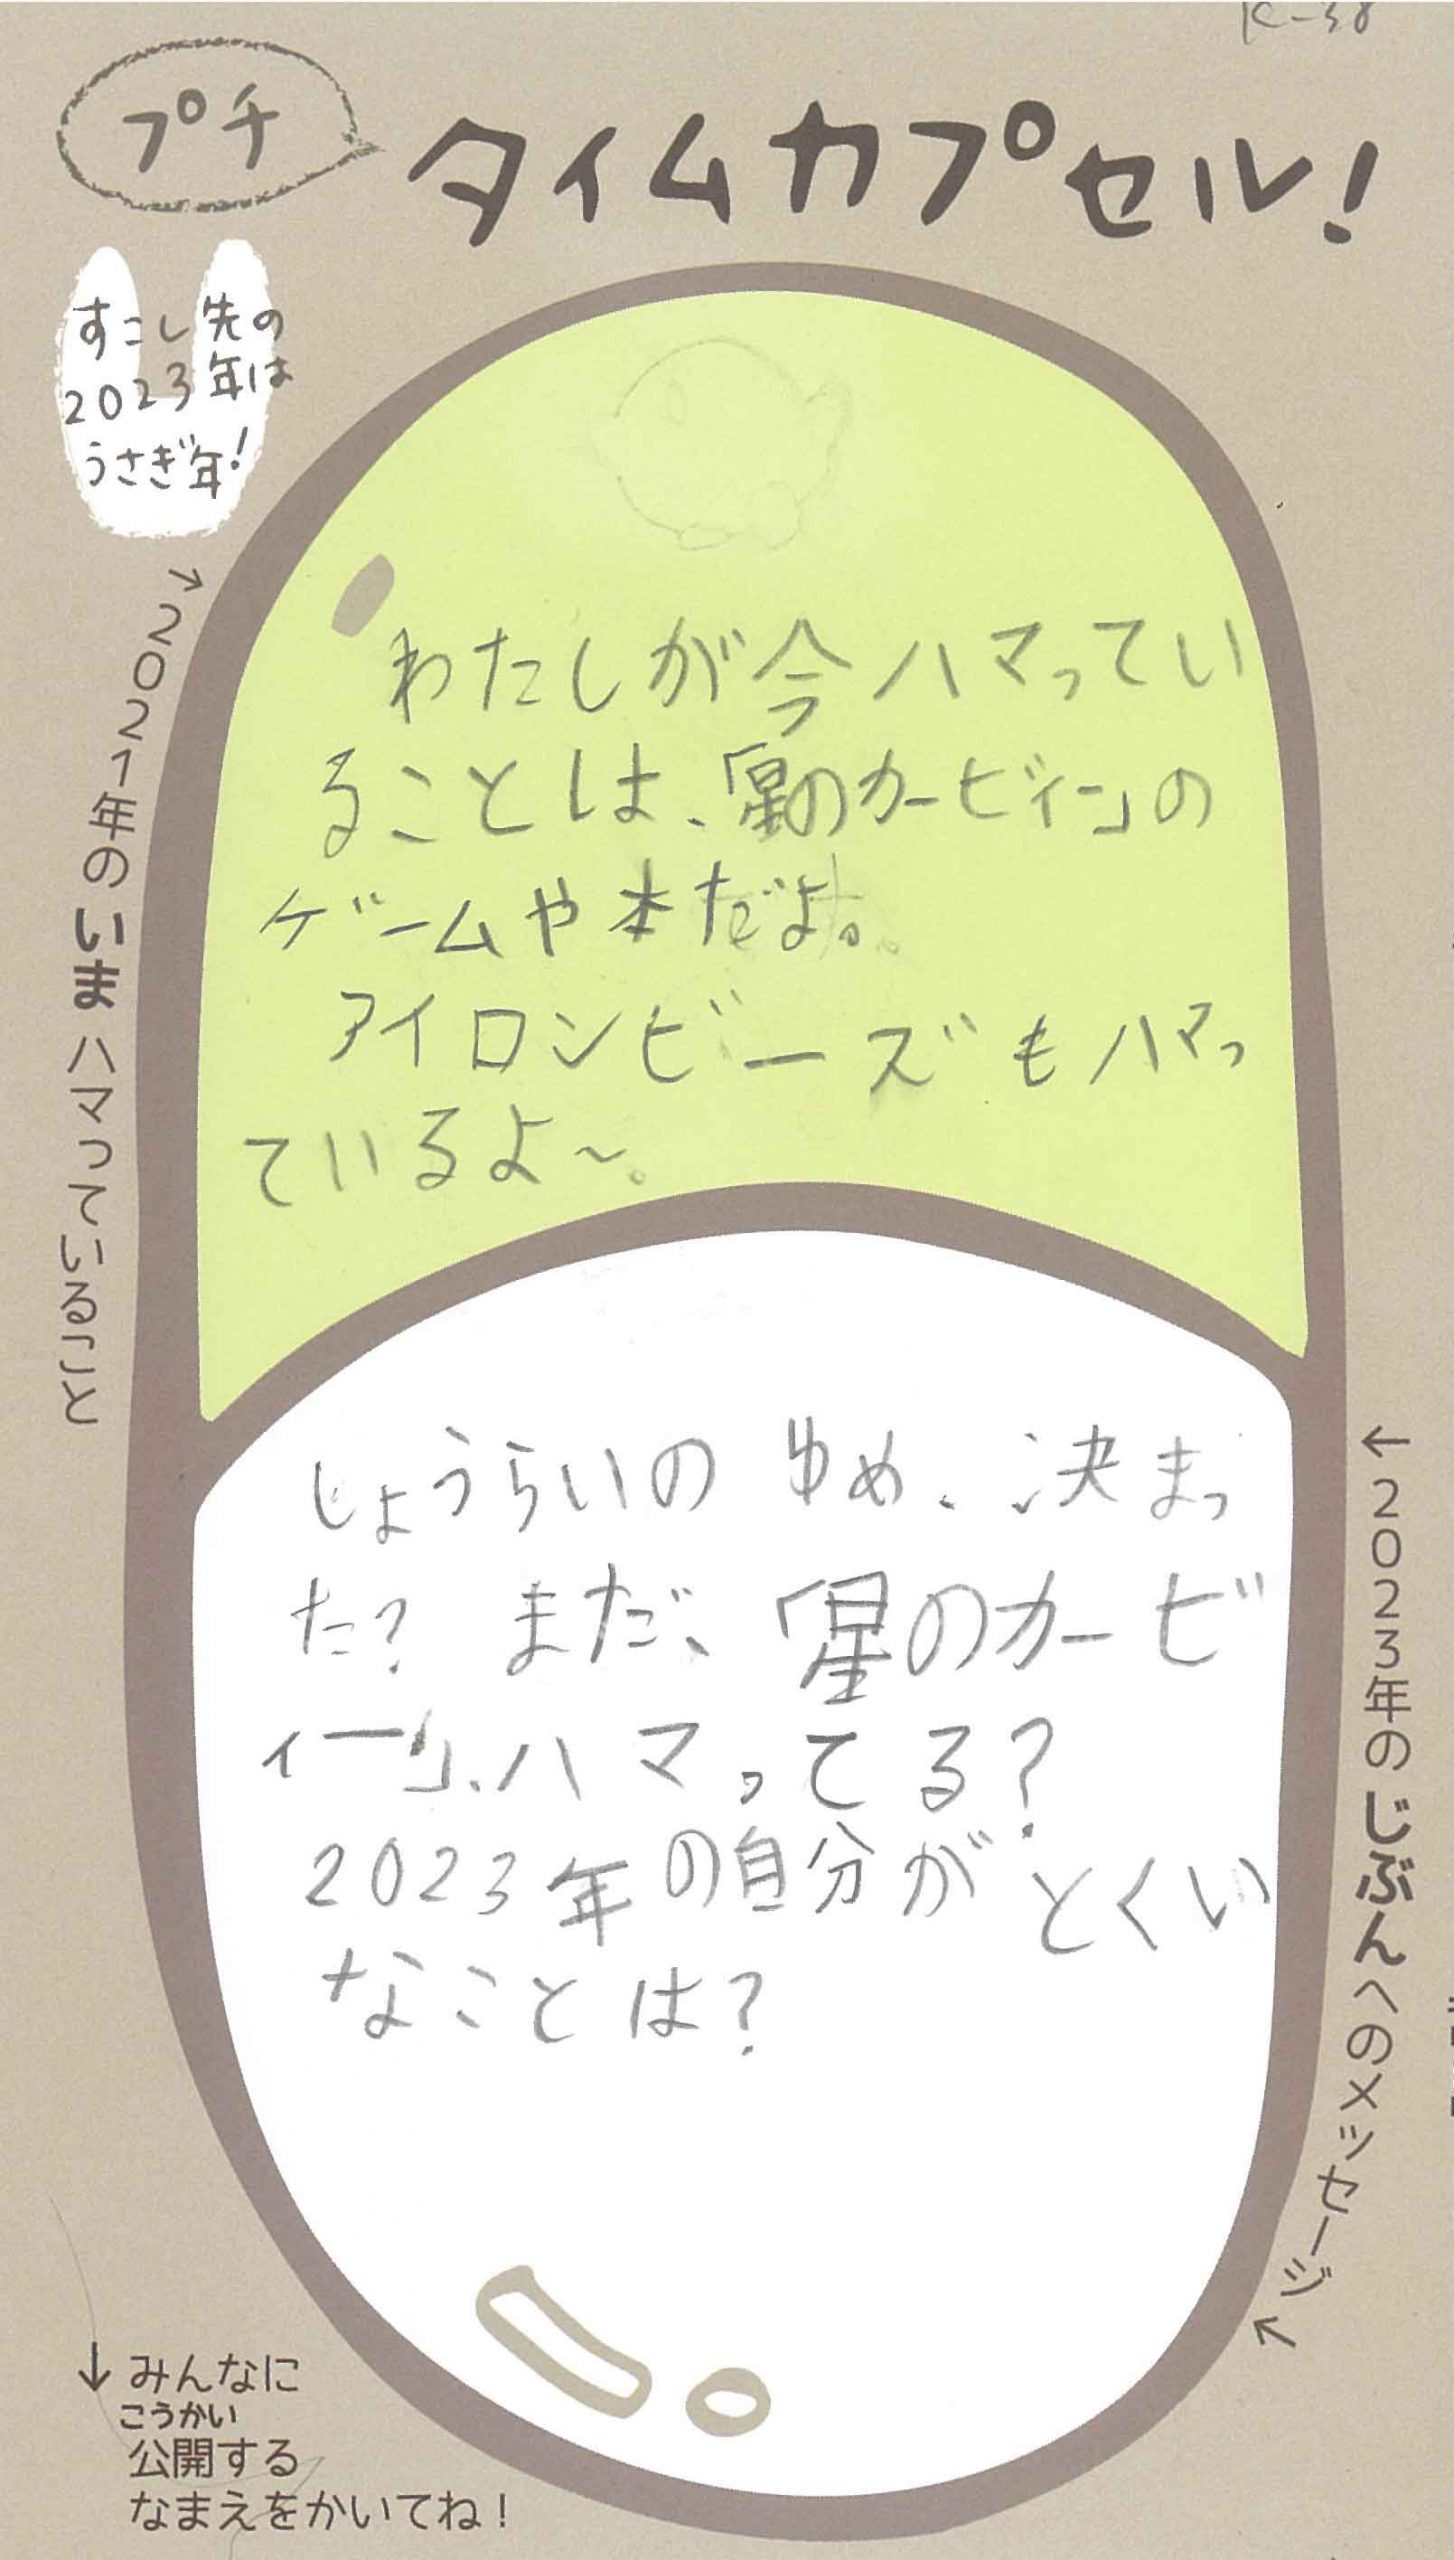 K-38
プチ
タイムカプセル！
すこし先の
2023年は
うさぎ年！
→2021年のいまハマっていること
わたしが今ハマってい
ることは、「星のカービィー」の
ゲームや本だよ。
アイロンビーズもハマっ
ているよ～。
←2023年のじぶんへのメッセージ
しょうらいのゆめ、決まっ
た？ まだ、「星のカービ
ィー」、ハマってる？
2023年の自分がとくい
なことは？
↓みんなに
こうかい
公開する
なまえをかいてね！